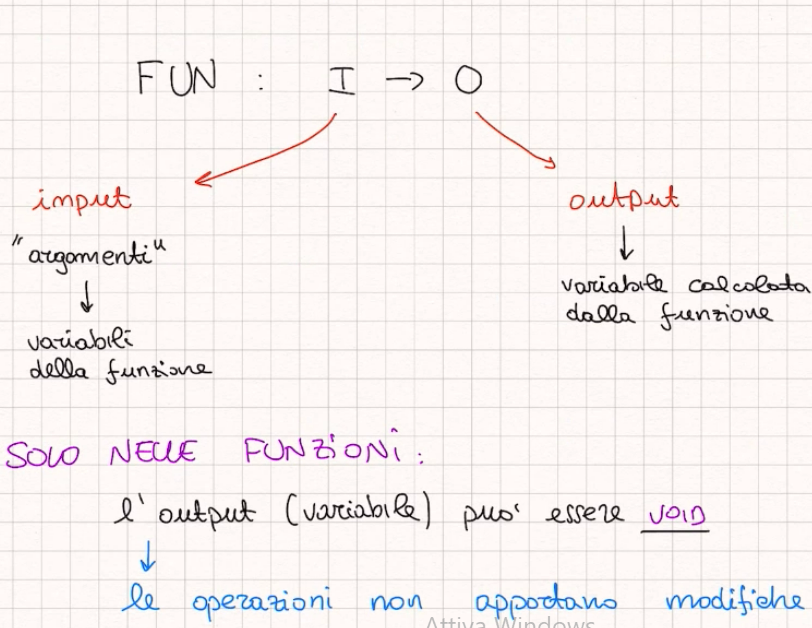 FUN : I → O
input
output
"argomenti"
↓
variabili
della funzione
↓
variabile calcolata
dalla funzione
SOLO NELLE FUNZIONI:
l'output (variabile) puo' essere VOID
↓
le operazioni non apportano modifiche
Attiva Windows